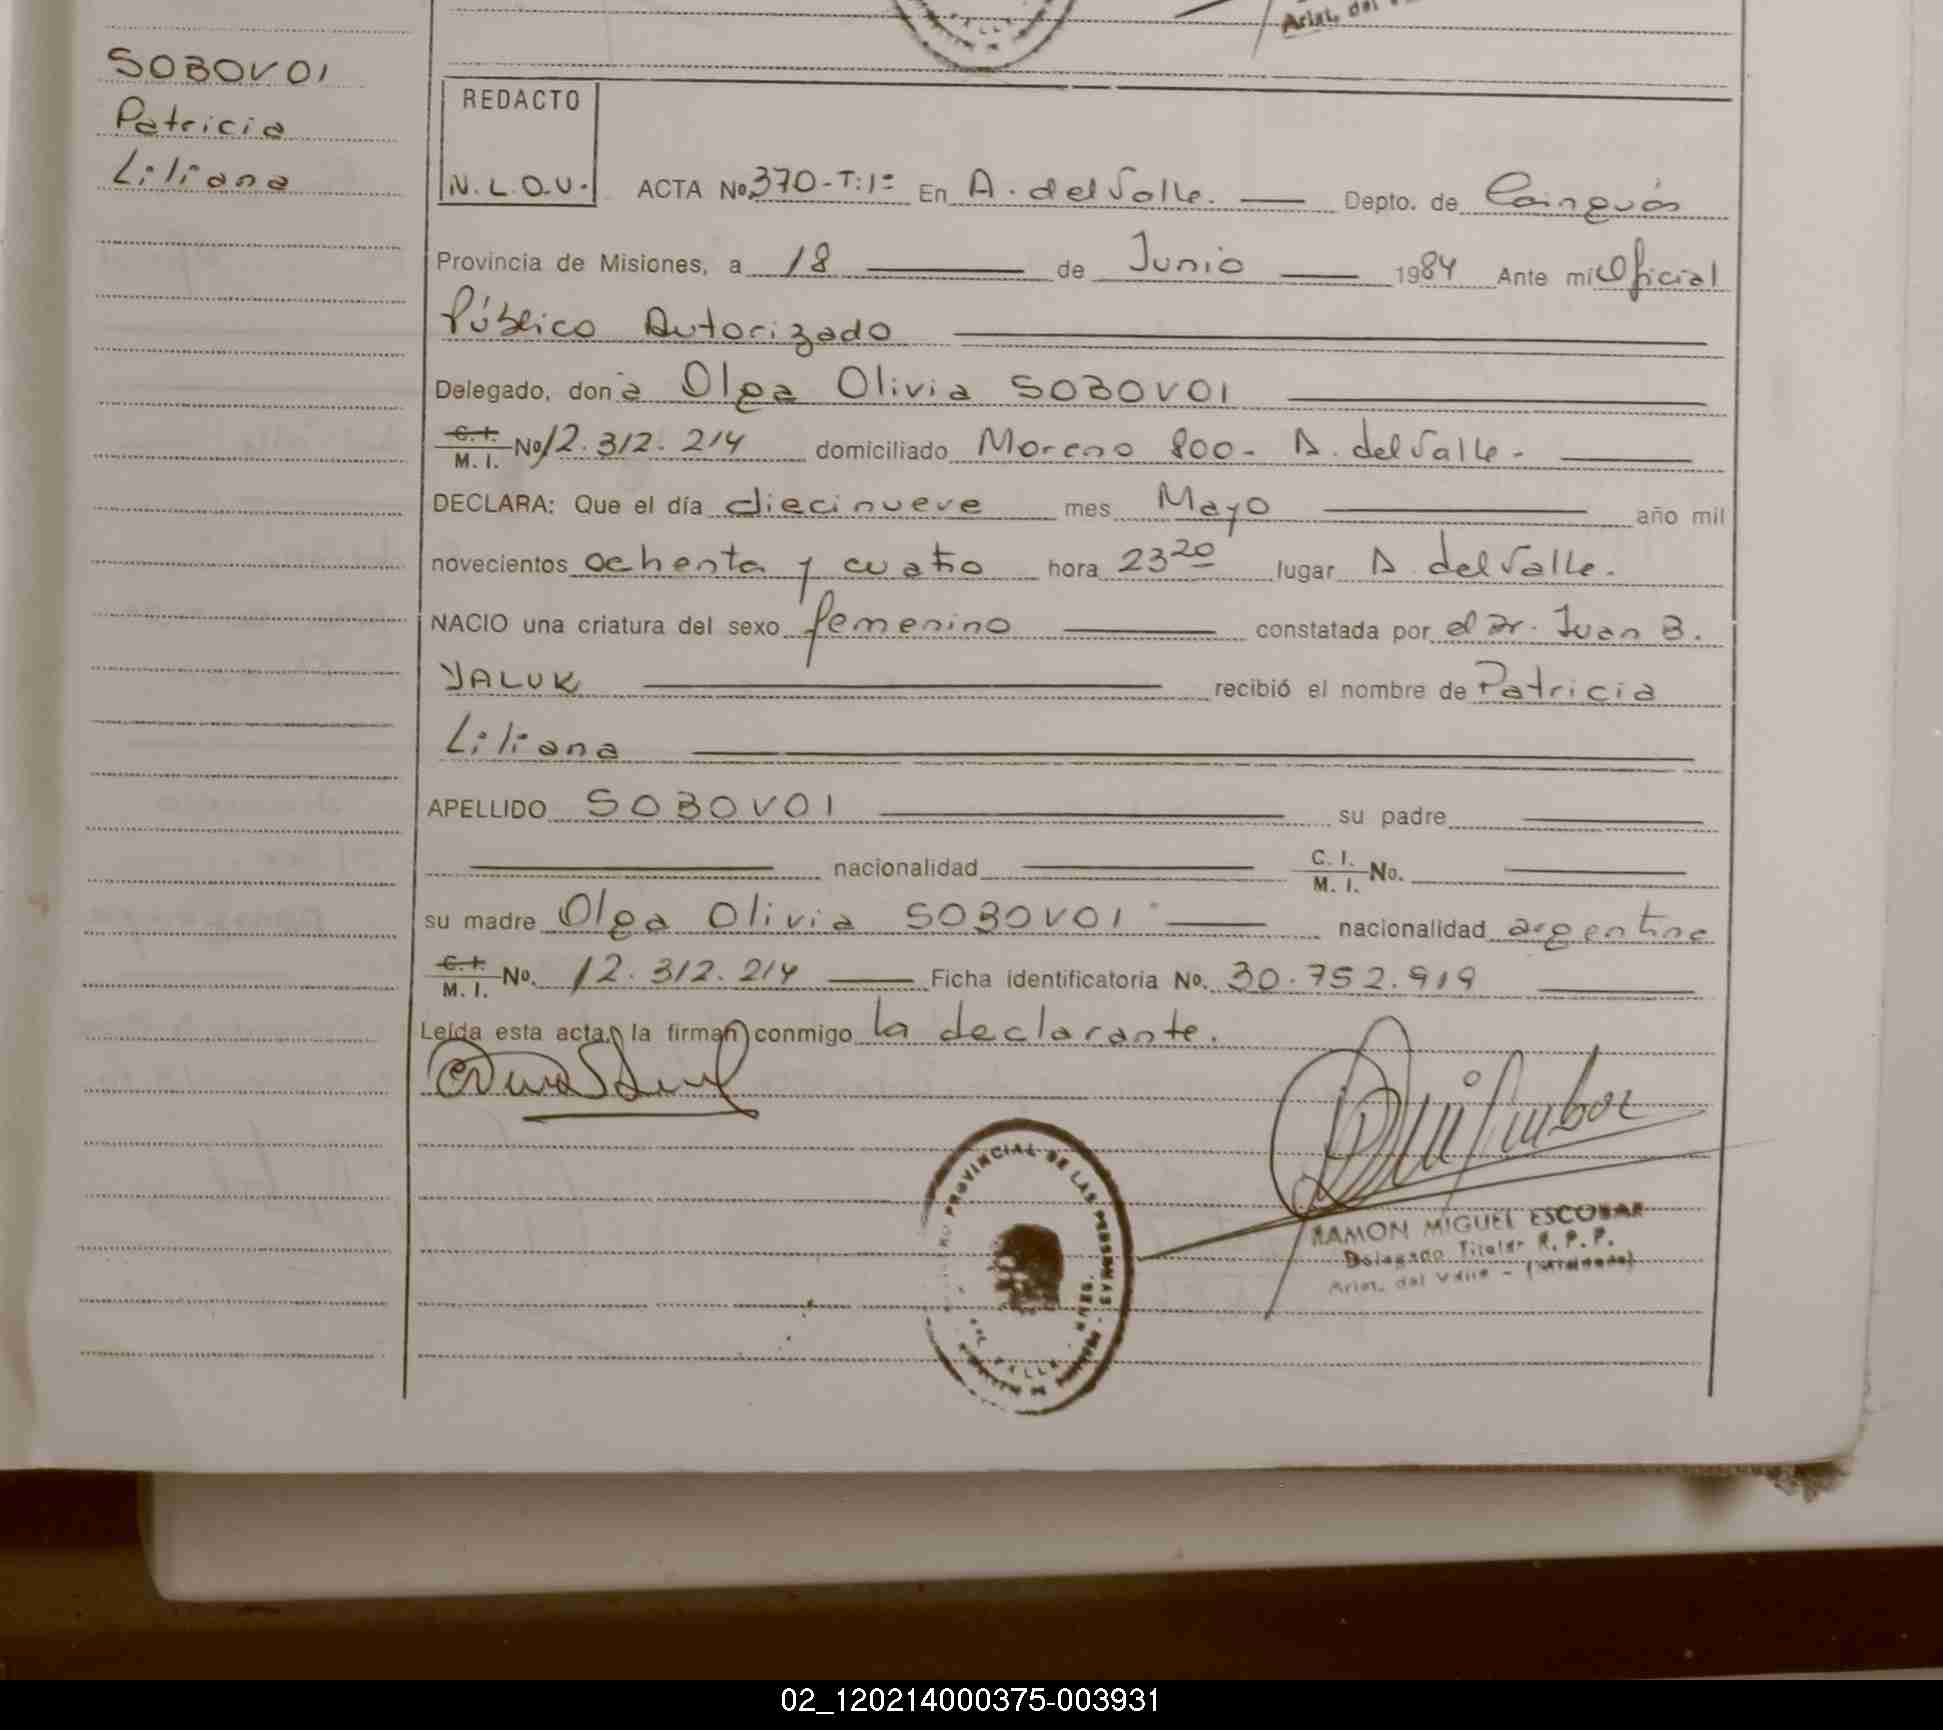 Arist. del
SOBOVOI
Patricia
Liliana
REDACTO
N.L.O.V.
ACTA No 370-T:1º En A. del Valle. Depto. de Cainguás
Provincia de Misiones, a 18 de Junio 1984 Ante mi Oficial
Público Autorizado
Delegado, don a Olga Olivia SOBOVOI
C. I. M. I. No 12.312.214 domiciliado Moreno 800- A. del Valle-
DECLARA: Que el día diecinueve mes Mayo año mil
novecientos ochenta y cuatro hora 23 20 lugar A. del Valle.
NACIO una criatura del sexo femenino constatada por el Dr. Juan B.
YALUK recibió el nombre de Patricia
Liliana
APELLIDO SOBOVOI su padre
nacionalidad C. I. M. I. No.
su madre Olga Olivia SOBOVOI nacionalidad argentina
C. I. M. I. No. 12.312.214 Ficha identificatoria No. 30.752.919
Leída esta acta, la firman conmigo la declarante.
PROVINCIAL DE LAS PERSONAS
RAMON MIGUEL ESCOBAR
Delegado Titular R. P. P.
Arist. del Valle - (Misiones)
02_120214000375-003931